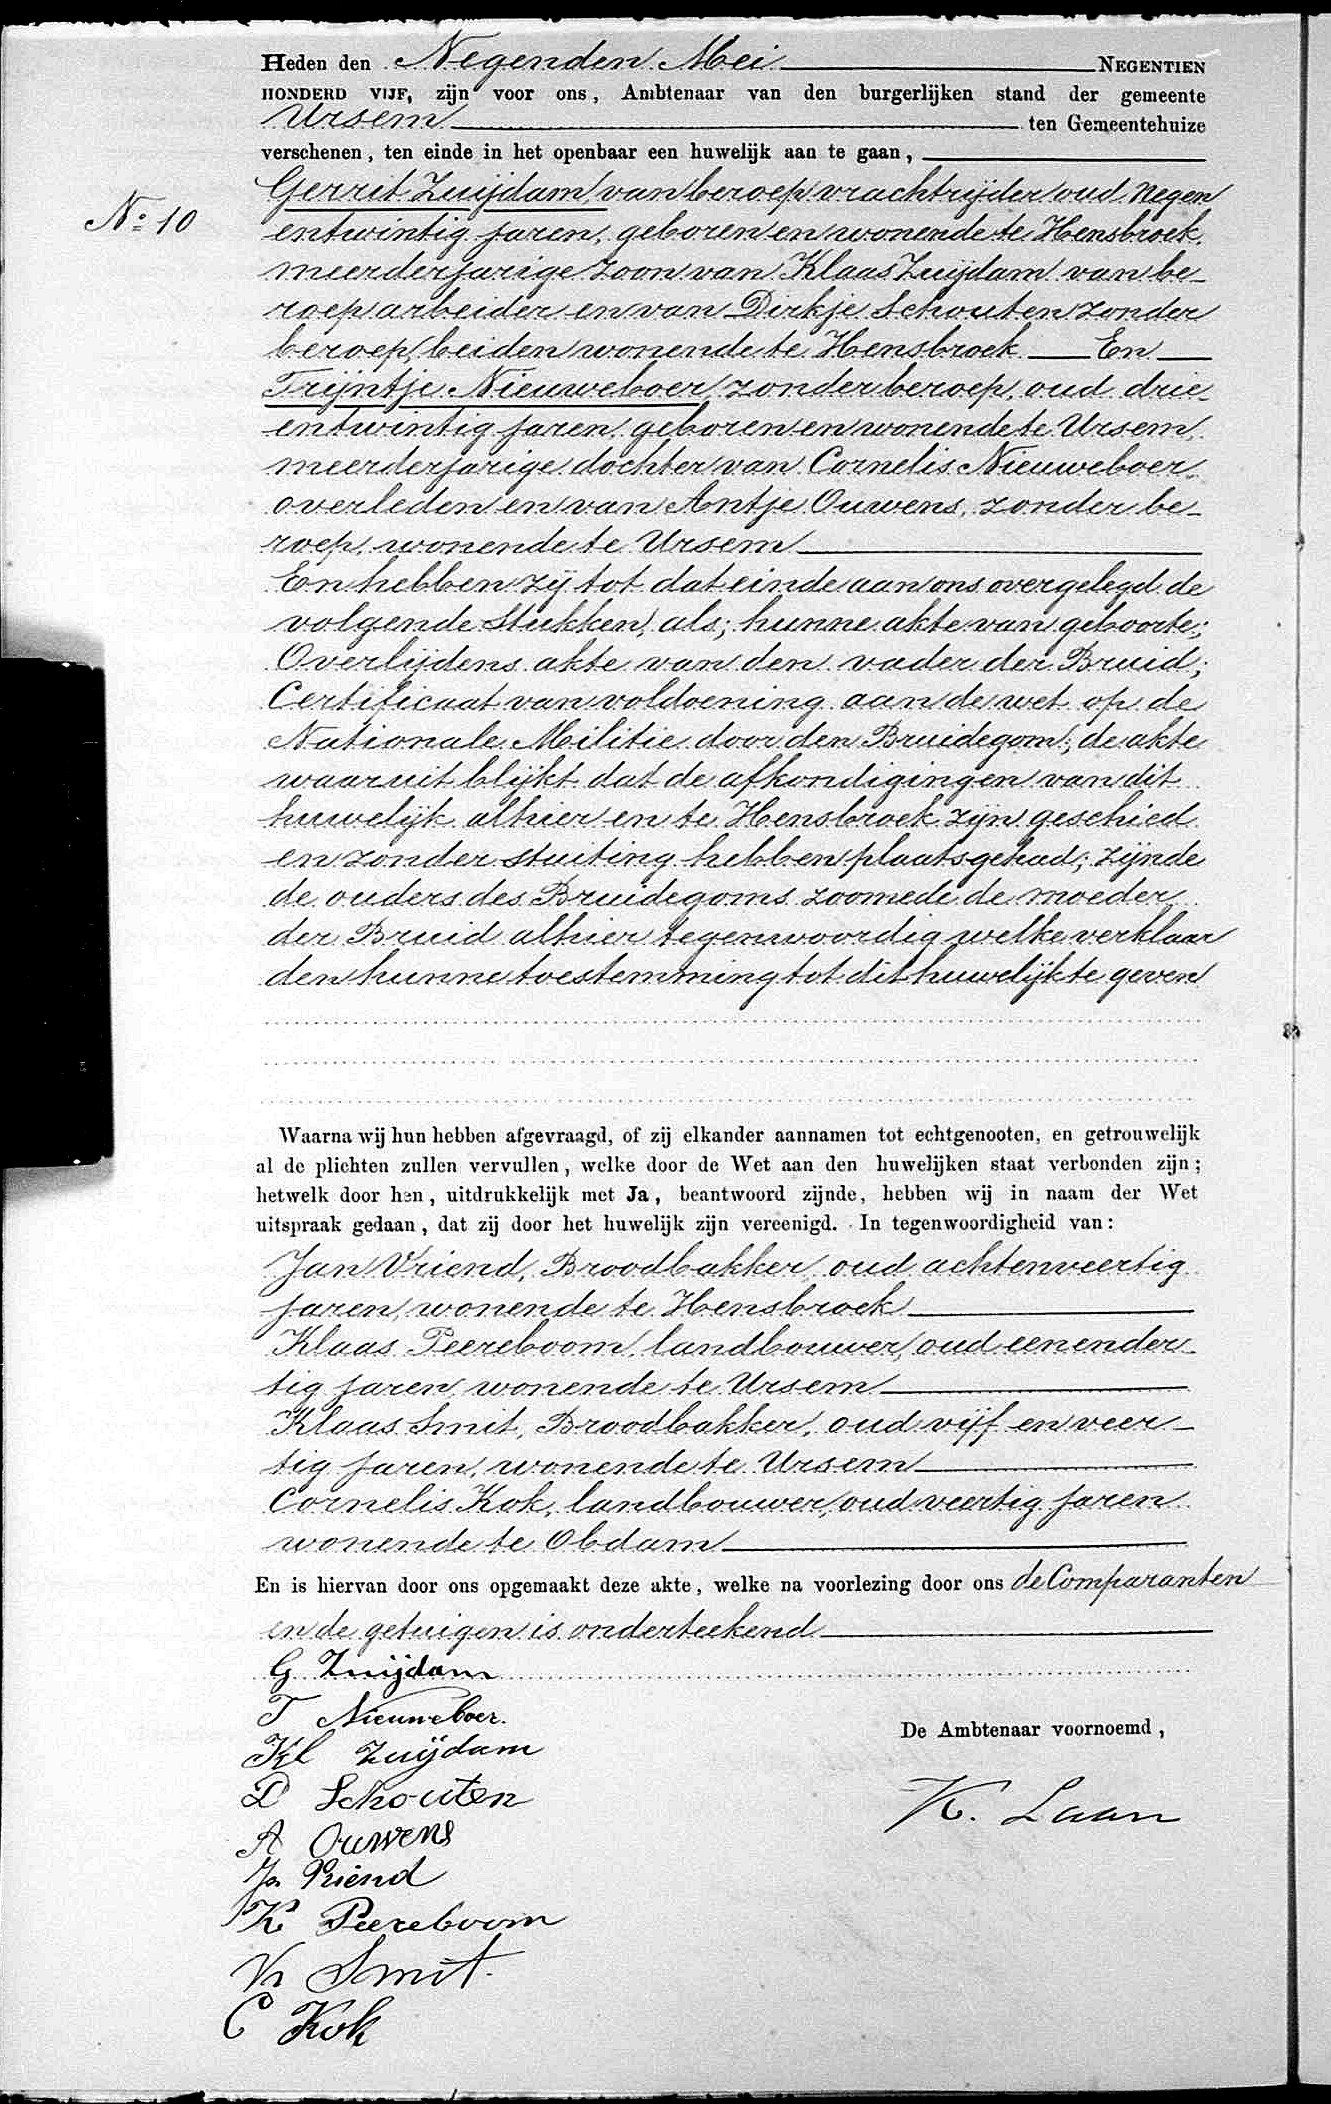 Heden den Negenden Mei NEGENTIEN
HONDERD VIJF, zijn voor ons, Ambtenaar van den burgerlijken stand der gemeente
Ursem ten Gemeentehuize
verschenen, ten einde in het openbaar een huwelijk aan te gaan,
No. 10
Gerrit Zuijdam, van beroep vrachtrijder, oud negen
entwintig jaren, geboren en wonende te Hensbroek,
meerderjarige zoon van Klaas Zuijdam van be-
roep arbeider en van Dirkje Schouten zonder
beroep, beiden wonende te Hensbroek En
Trijntje Nieuweboer, zonder beroep, oud drie-
entwintig jaren, geboren en wonende te Ursem,
meerderjarige dochter van Cornelis Nieuweboer,
overleden en van Antje Ouwens, zonder be-
roep, wonende te Ursem
En hebben zij tot dat einde aan ons overgelegd de
volgende stukken, als; hunne akte van geboorte;
Overlijdens akte van den vader der Bruid;
Certificaat van voldoening aan de wet op de
Nationale Militie door den Bruidegom; de akte
waaruit blijkt dat de afkondigingen van dit
huwelijk alhier en te Hensbroek zijn geschied
en zonder stuiting hebben plaatsgehad; zijnde
de ouders des Bruidegoms zoomede de moeder
der Bruid alhier tegenwoordig welke verklaar
den hunne toestemming tot dit huwelijk te geven
Waarna wij hun hebben afgevraagd, of zij elkander aannamen tot echtgenooten, en getrouwelijk
al de plichten zullen vervullen, welke door de Wet aan den huwelijken staat verbonden zijn;
hetwelk door hen, uitdrukkelijk met Ja, beantwoord zijnde, hebben wij in naam der Wet
uitspraak gedaan, dat zij door het huwelijk zijn vereenigd. In tegenwoordigheid van:
Jan Vriend, Broodbakker, oud achtenveertig
jaren, wonende te Hensbroek
Klaas Peereboom, landbouwer, oud eenender-
tig jaren, wonende te Ursem
Klaas Smit, Broodbakker, oud vijf en veer-
tig jaren, wonende te Ursem
Cornelis Kok, landbouwer, oud veertig jaren
wonende te Obdam
En is hiervan door ons opgemaakt deze akte, welke na voorlezing door ons de Comparanten
en de getuigen is onderteekend
G Zuijdam
T Nieuweboer.
Kl Zuijdam
De Ambtenaar voornoemd,
D Schouten
K. Laan
A Ouwens
Jn Vriend
K Peereboom
Kl Smit.
C Kok